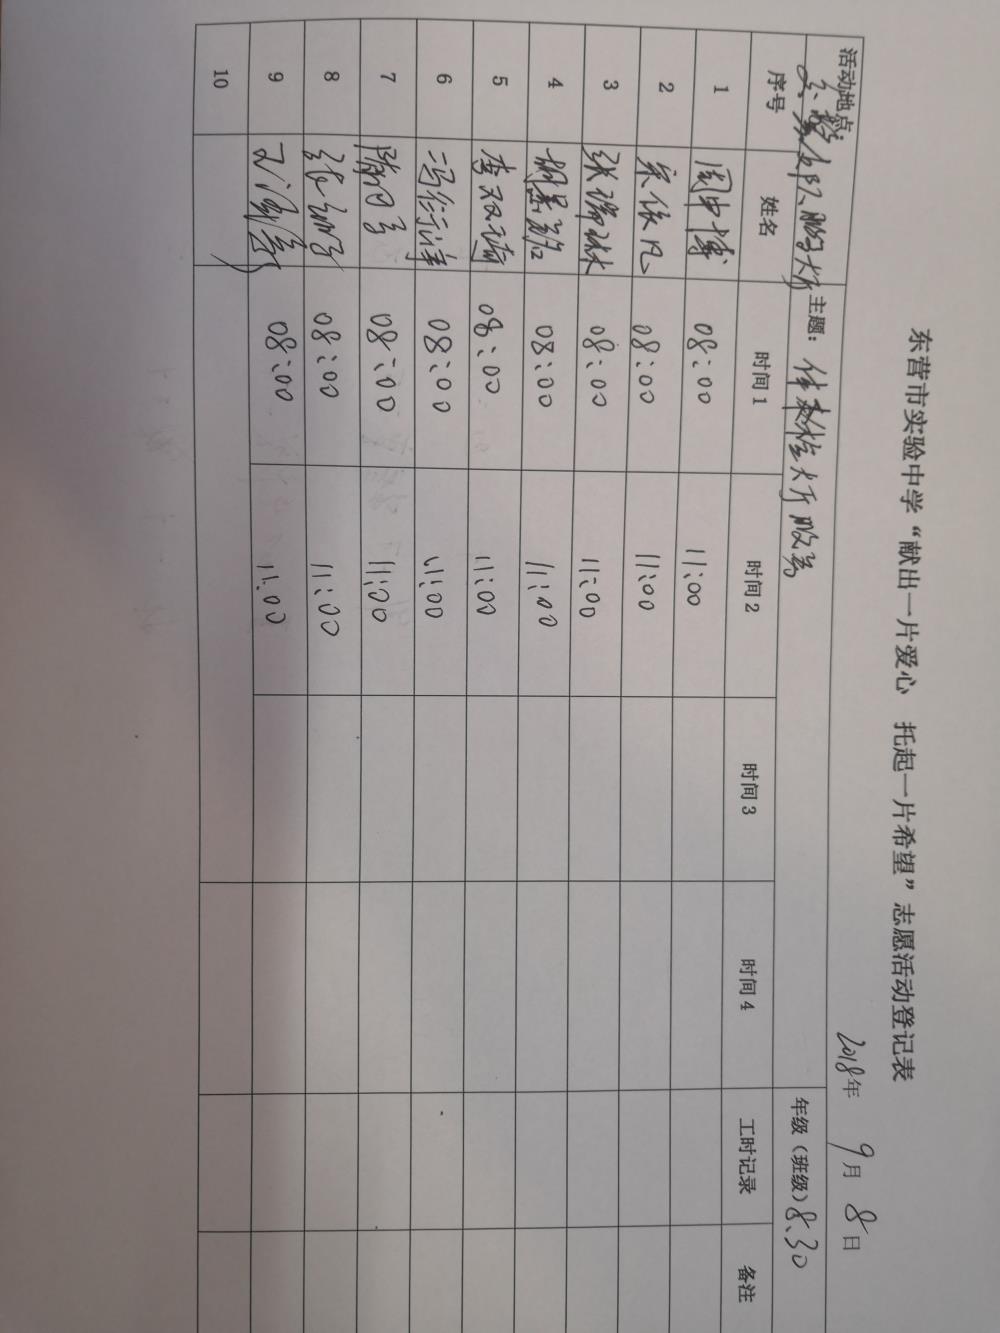 东营市实验中学“献出一片爱心 托起一片希望”志愿活动登记表
2018年 9月 8日
活动地点： 主题： 大厅服务 年级（班级）8.30
序号 姓名 时间1 时间2 时间3 时间4 工时记录 备注
1 周中博 08:00 11:00
2 宋依凡 08:00 11:00
3 张瑞林 08:00 11:00
4 08:00 11:00
5 李双 08:00 11:00
6 冯衍 08:00 11:00
7 陈 08:00 11:00
8 张 08:00 11:00
9 08:00 11:00
10